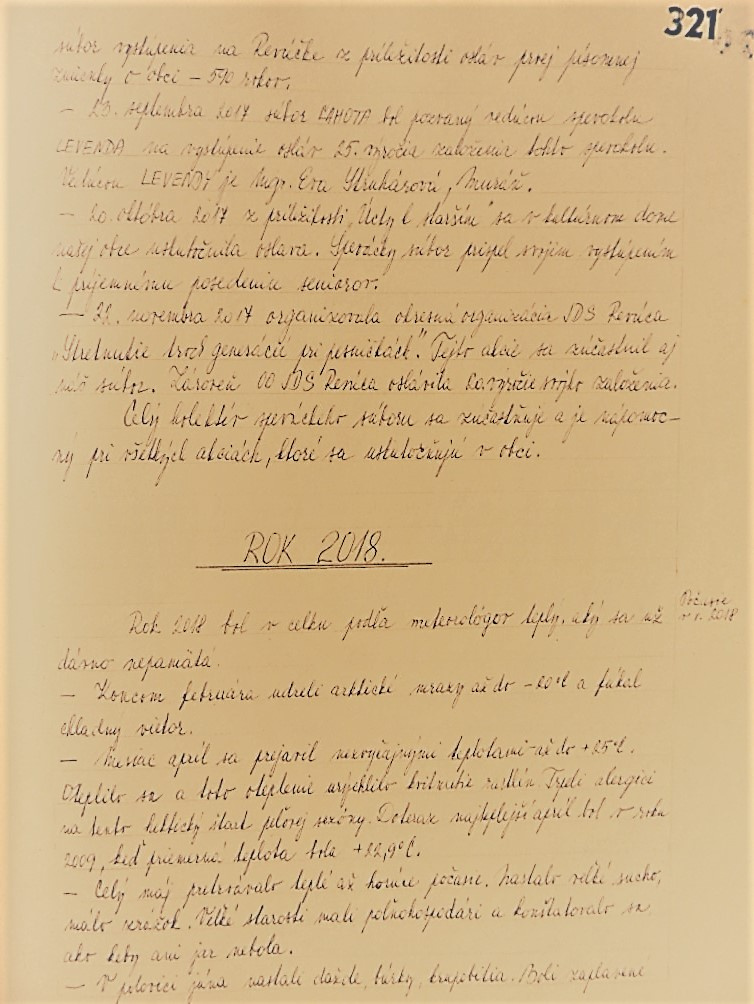 321
súbor vystúpenie na Revúčke z príležitosti osláv prvej písomnej
zmienky o obci – 590 rokov.
– 23. septembra 2017 súbor LAHOTA bol pozvaný vedúcou spevokolu
LEVENDA na vystúpenie osláv 25. výročia založenia tohto spevokolu.
Vedúcou LEVENDY je Mgr. Eva Struhárová, Muráň.
– 20. októbra 2017 z príležitosti „Úcty k starším" sa v kultúrnom dome
našej obce uskutočnila oslava. Spevácky súbor prispel svojim vystúpením
k príjemnému posedeniu seniorov.
– 22. novembra 2017 organizovala okresná organizácia JDS Revúca
„Stretnutie troch generácií pri pesničkách". Tejto akcie sa zúčastnil aj
náš súbor. Zároveň OO JDS Revúca oslávila výročie svojho založenia.
Celý kolektív speváckeho súboru sa zúčastňuje a je nápomoc-
ný pri všetkých akciách, ktoré sa uskutočňujú v obci.
ROK 2018.
Počasie
v r. 2018
Rok 2018 bol v celku podľa meteorológov teplý, aký sa už
dávno nepamätá.
– Koncom februára udreli arktické mrazy až do –20°C a fúkal
chladný vietor.
– Mesiac apríl sa prejavil nezvyčajnými teplotami – až do +25°C.
Oteplilo sa a toto oteplenie urýchlilo kvitnutie rastlín. Trpeli alergici
na tento hektický štart peľovej sezóny. Doteraz najteplejší apríl bol v roku
2009, keď priemerná teplota bola +22,9°C.
– Celý máj pretrvávalo teplé až horúce počasie. Nastalo veľké sucho,
málo zrážok. Veľké starosti mali poľnohospodári a konštatovalo sa,
ako keby ani jar nebola.
– V polovici júna nastali dažde, búrky, krupobitia. Boli zaplavené